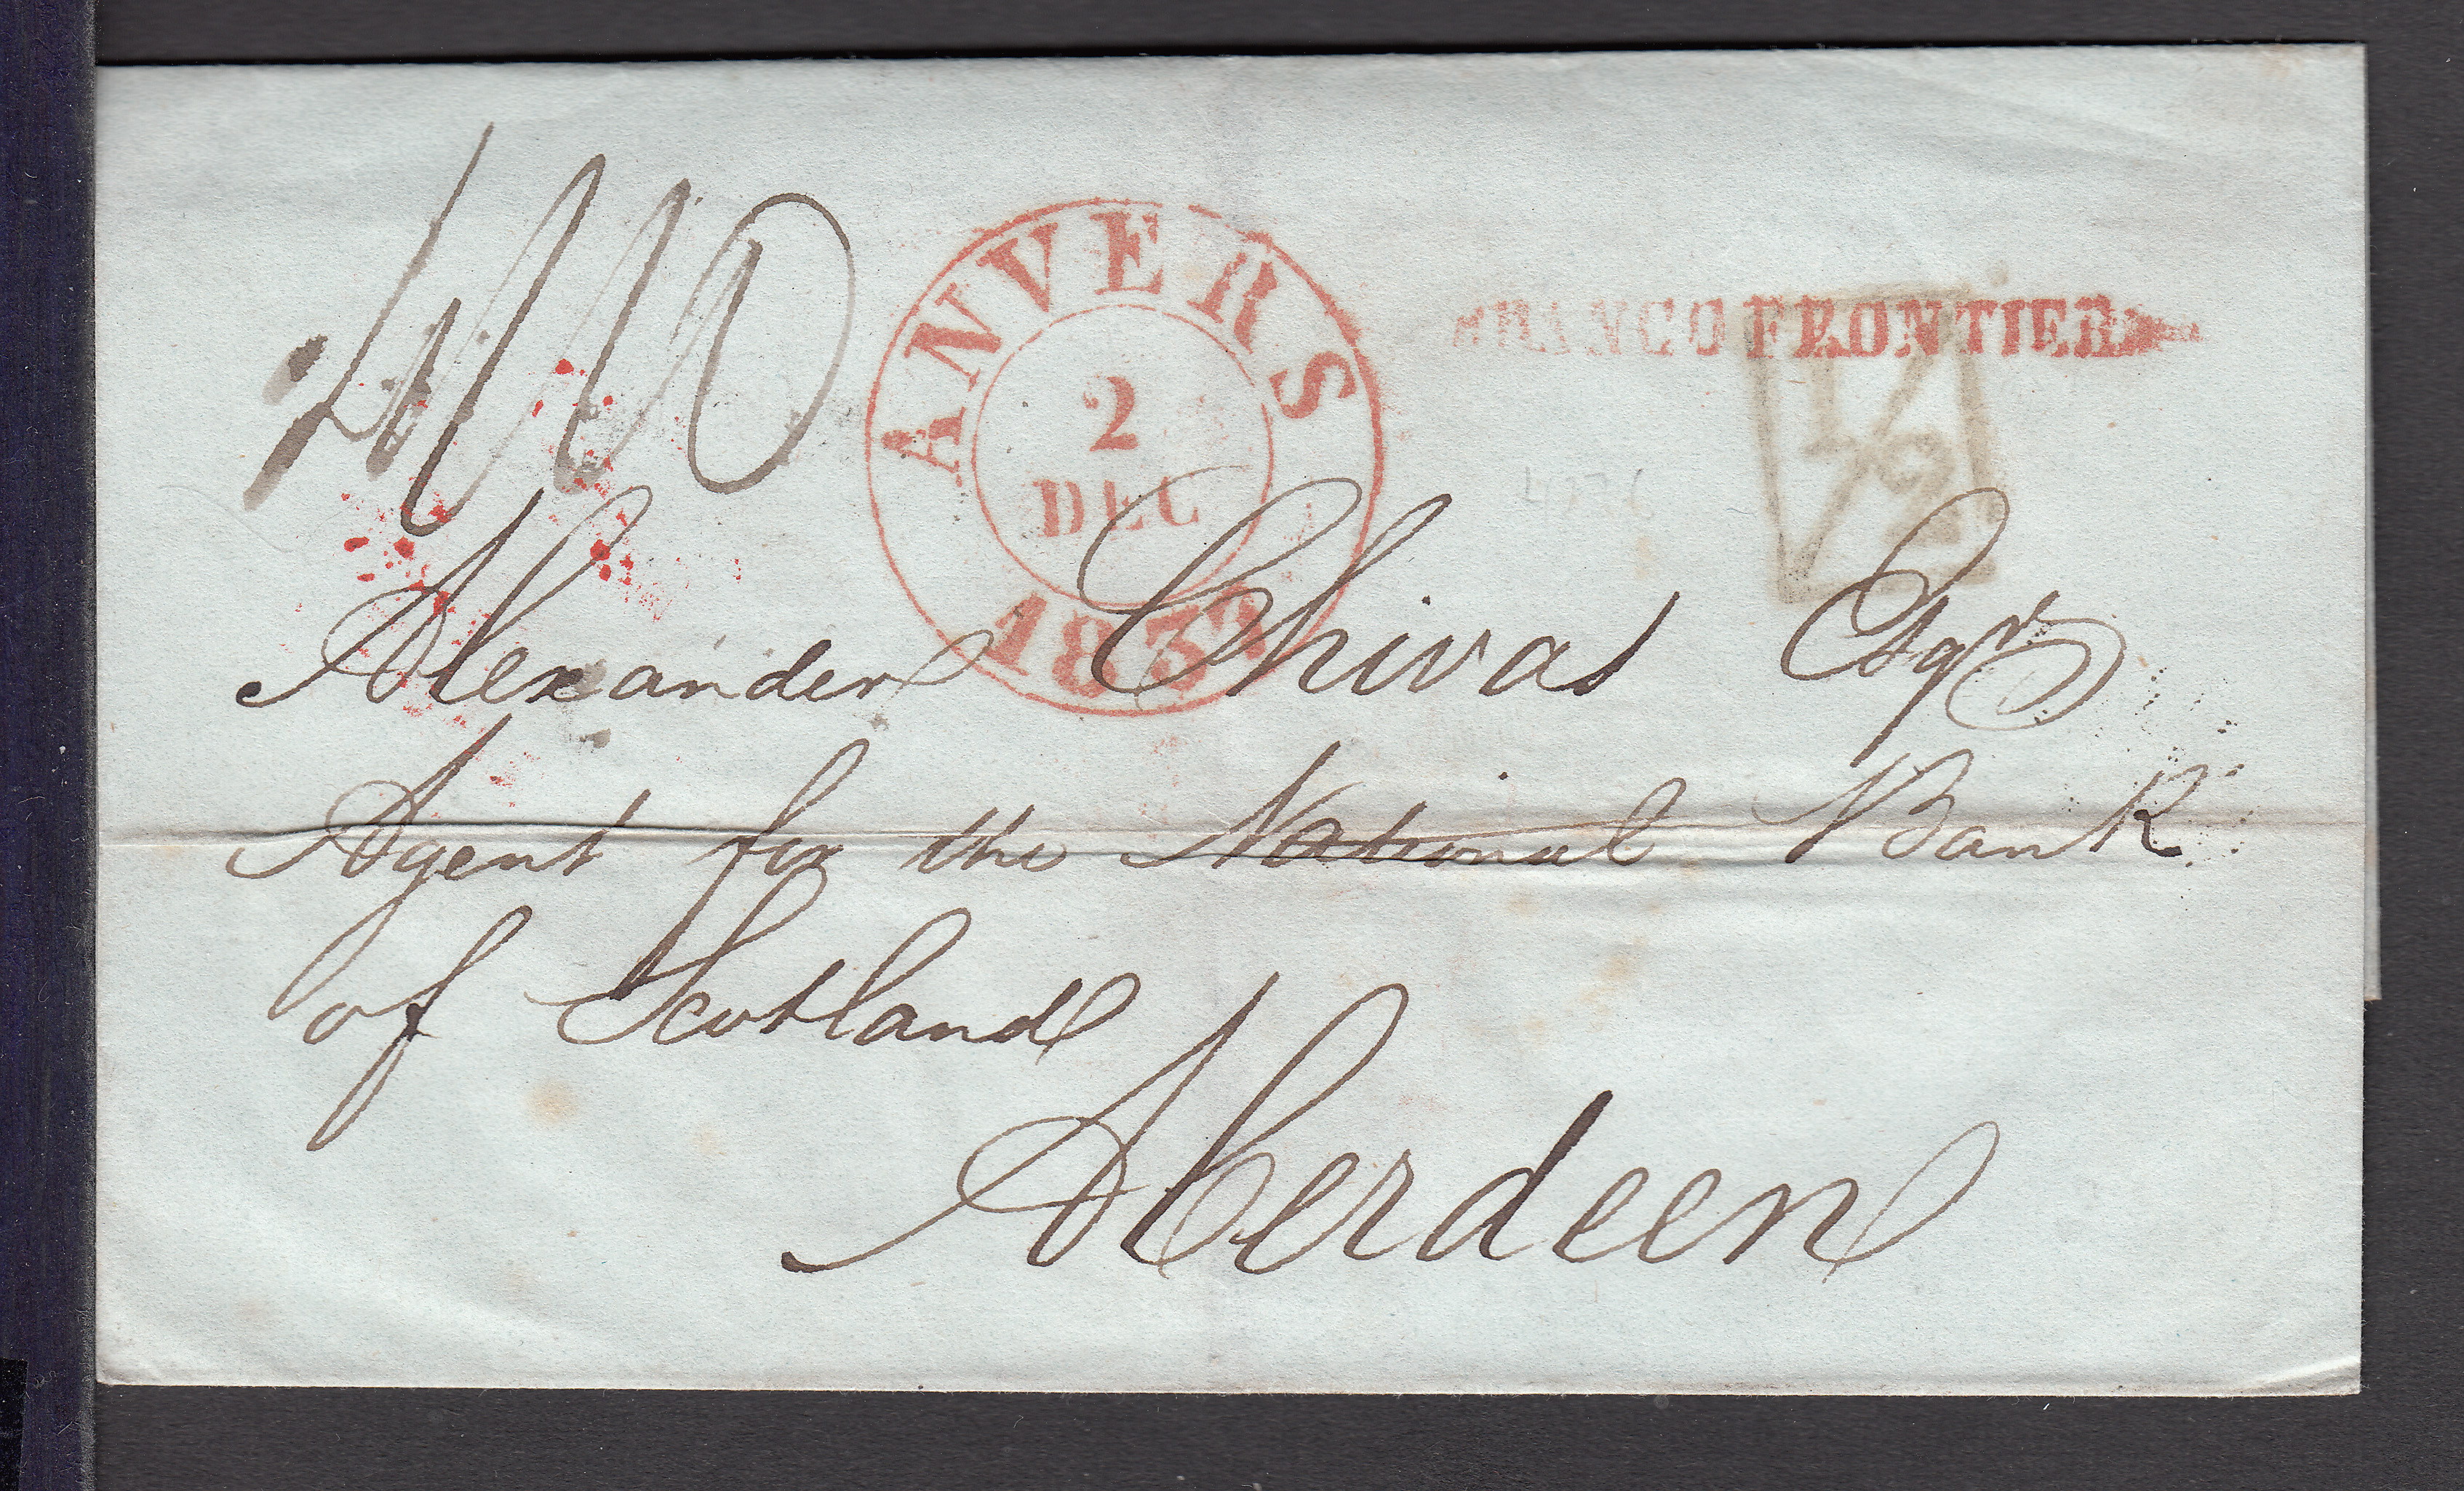 ANVERS
2
DEC
183
FRANCO FRONTIER
1/2
Alexander Chivas Esqr
Agent for the National Bank
of Scotland
Aberdeen